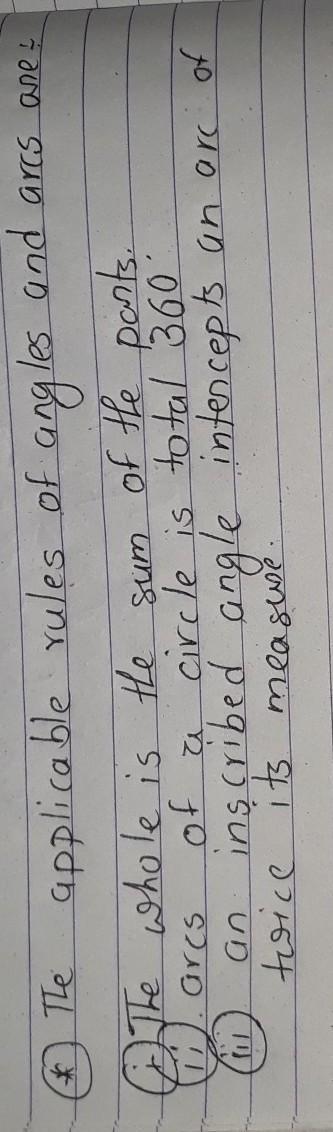 * The applicable rules of angles and arcs are:
(i) The whole is the sum of the parts.
(ii) arcs of a circle is total 360°
(iii) an inscribed angle intercepts an arc of
twice its measure.